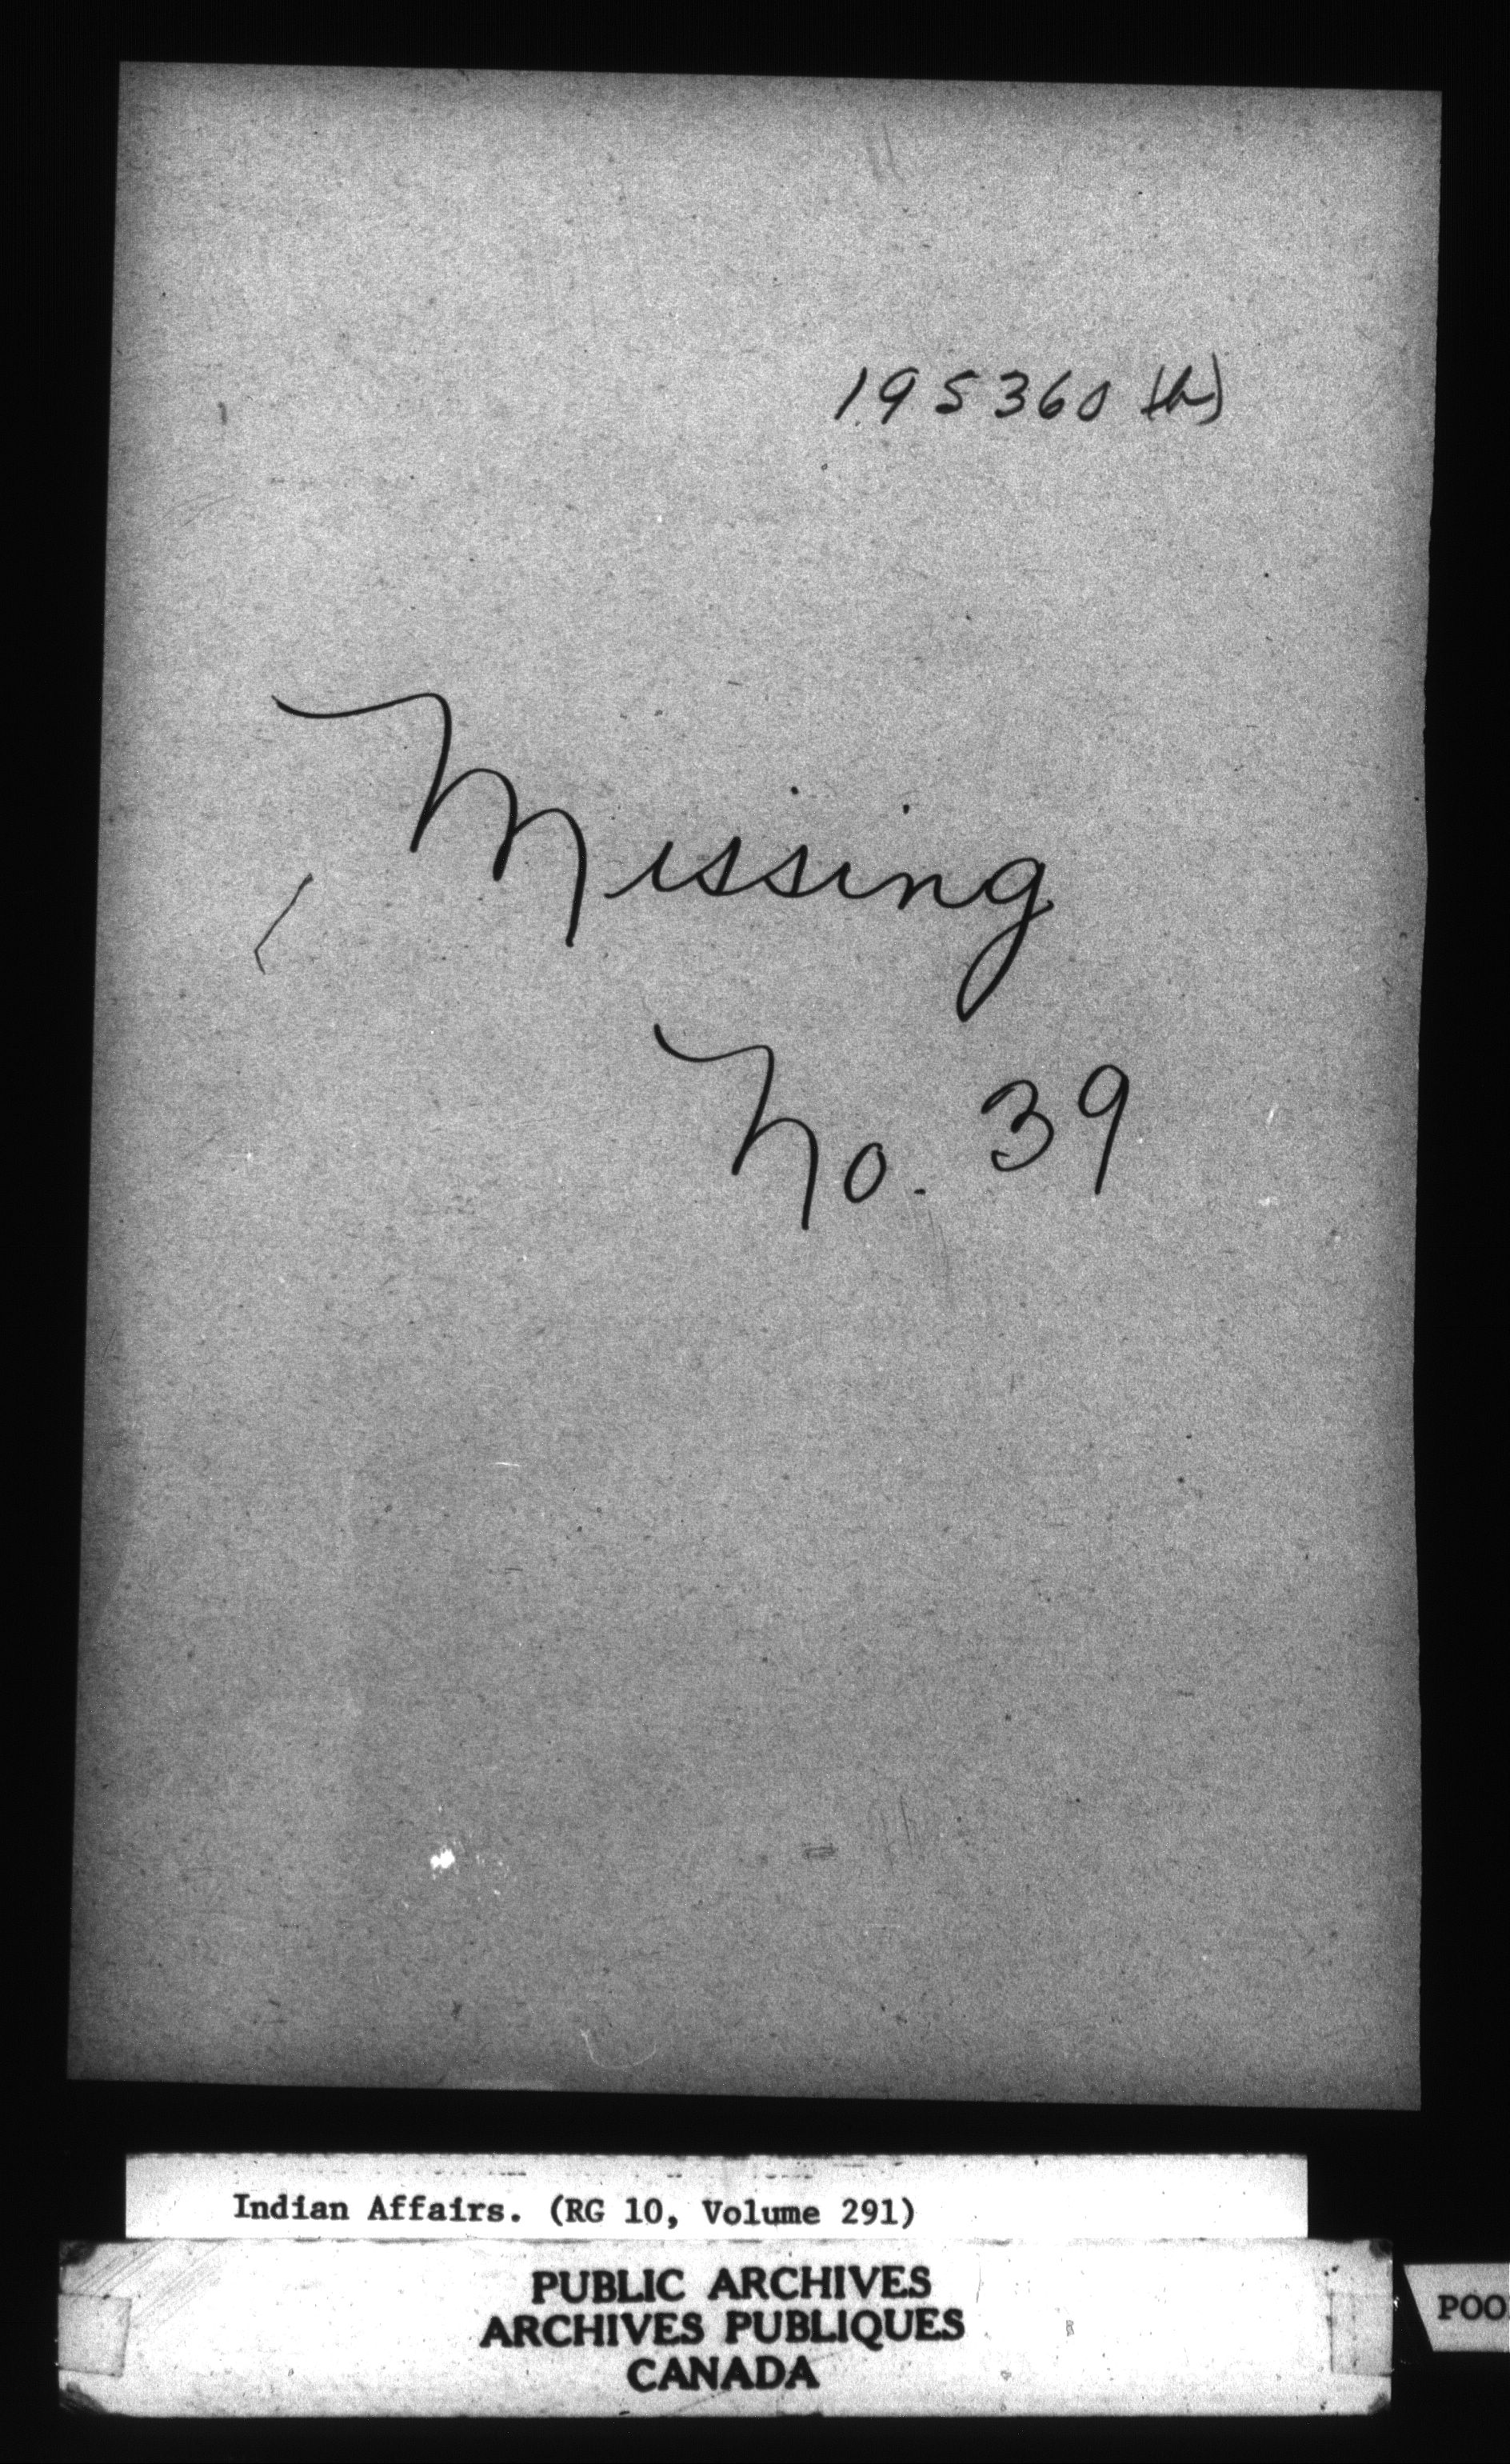 195360 (h)
Missing
No. 39
Indian Affairs. (RG 10, Volume 291)
PUBLIC ARCHIVES
ARCHIVES PUBLIQUES
CANADA
POO